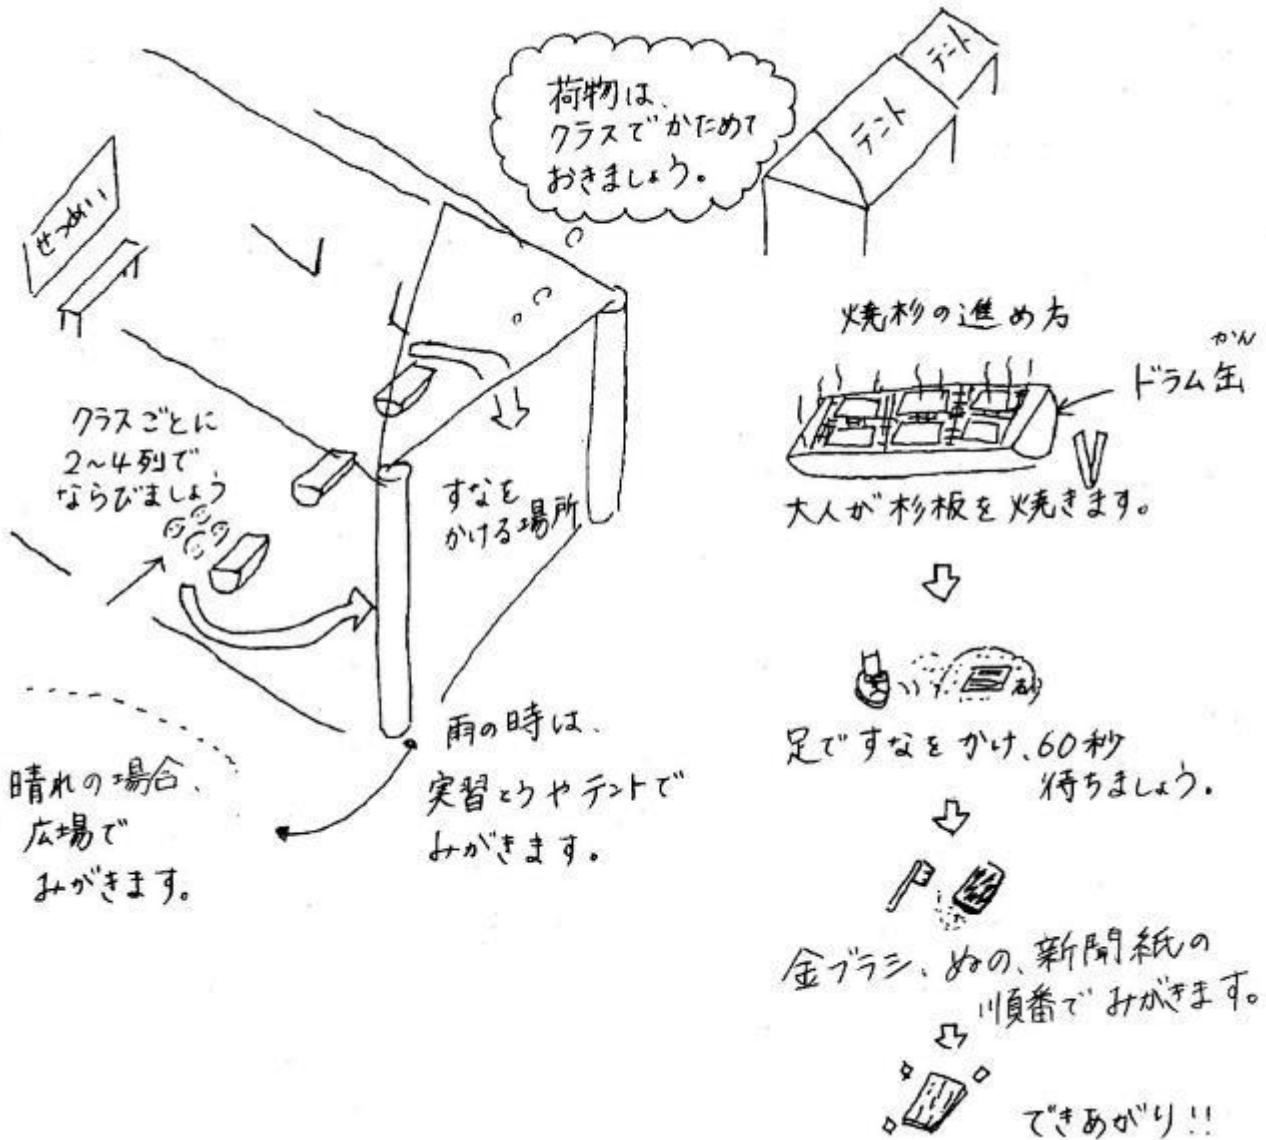 荷物は、
クラスでかためて
おきましょう。
テント
テント
せつめい
クラスごとに
2～4列で
ならびましょう
すなを
かける場所
晴れの場合、
広場で
みがきます。
雨の時は、
実習とうやテントで
みがきます。
焼杉の進め方
かん
ドラム缶
大人が杉板を焼きます。
足ですなをかけ、60秒
待ちましょう。
金ブラシ、ぬの、新聞紙の
順番でみがきます。
できあがり!!